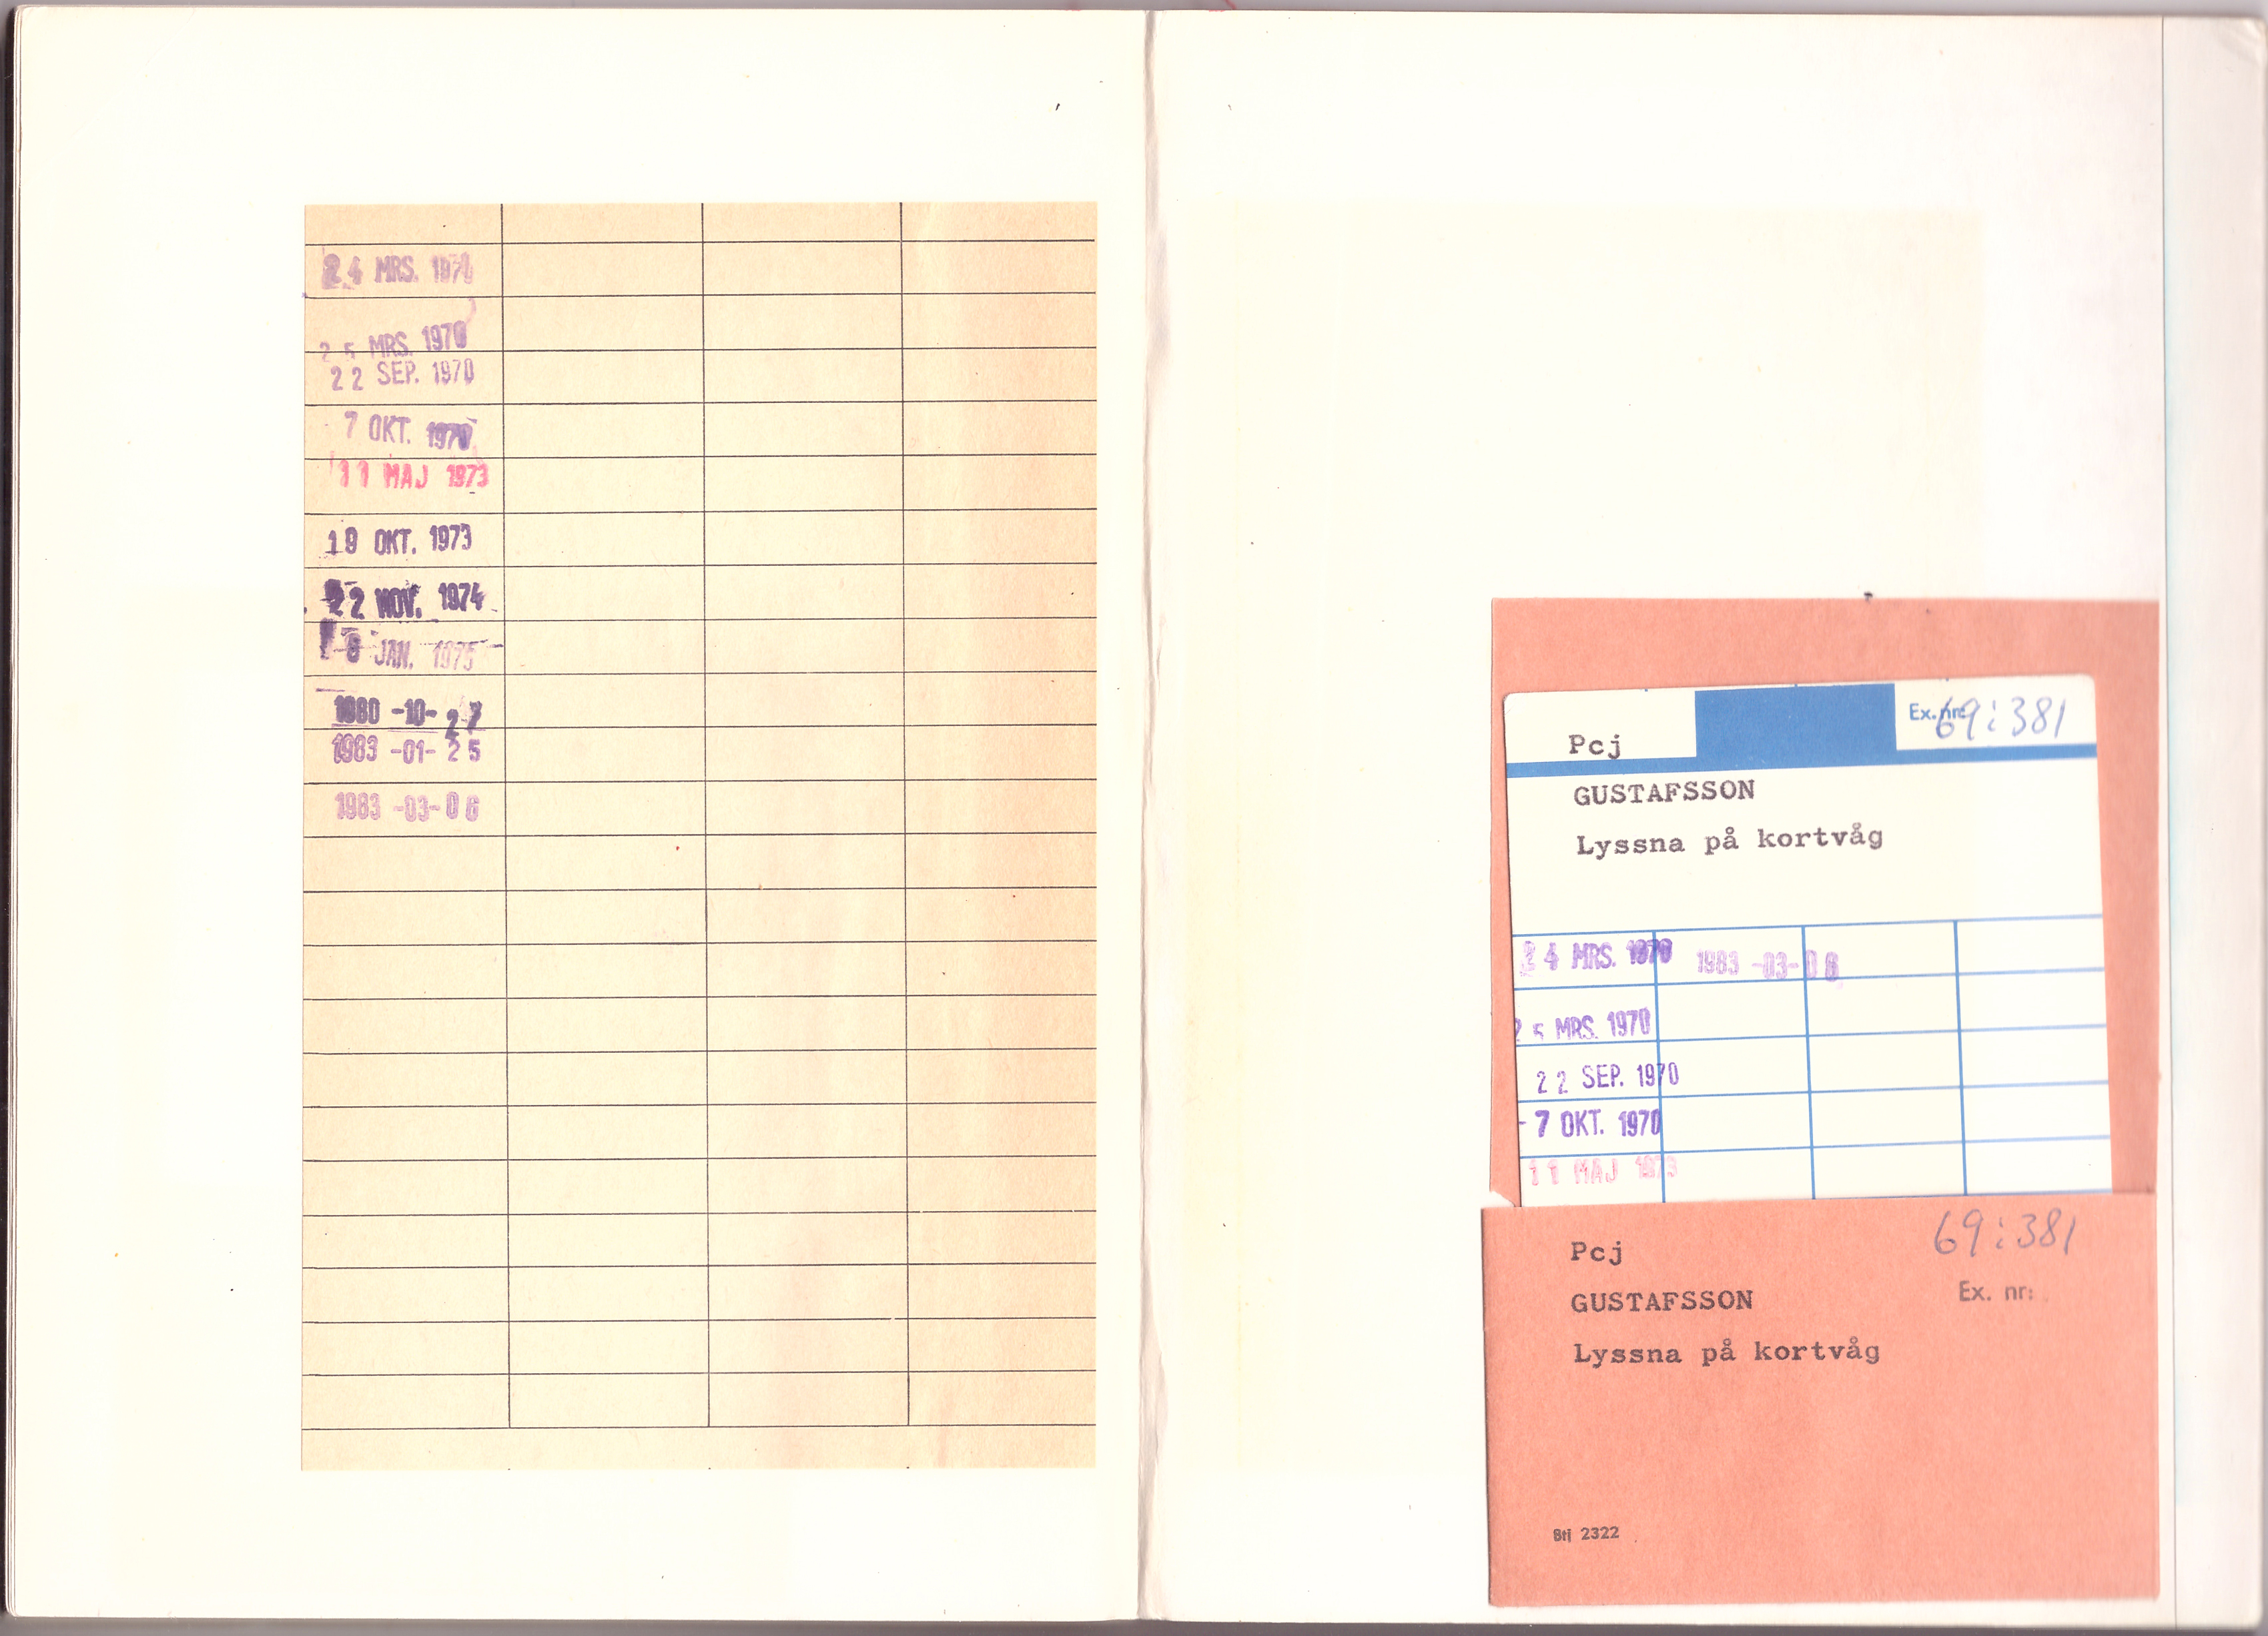 24 MRS. 1970
25 MRS. 1970
22 SEP. 1970
-7 OKT. 1970
11 MAJ 1973
19 OKT. 1973
22 NOV. 1974
-8 JAN. 1975
1980 -10- 27
1983 -01- 25
1983 -03- 06
Pcj
Ex. nr: 69:381
GUSTAFSSON
Lyssna på kortvåg
24 MRS. 1970 1983 -03- 06
25 MRS. 1970
22 SEP. 1970
-7 OKT. 1970
11 MAJ 1973
Pcj 69:381
GUSTAFSSON Ex. nr:
Lyssna på kortvåg
Btj 2322